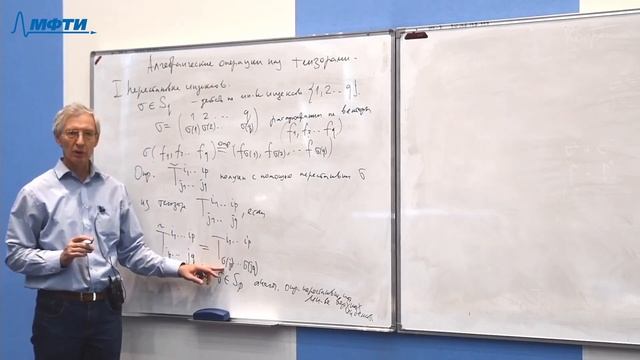 МФТИ
Алгебраические операции над тензорами.
I Перестановка индексов.
σ ∈ S_q - действ. по мн-ву индексов {1, 2 ... q}.
σ = ( 1 2 ... q / σ(1) σ(2) ... σ(q) )
(f_1, f_2 ... f_q)
σ(f_1, f_2 ... f_q) = (f_σ(1), f_σ(2), ... f_σ(q))
Опр. T̃^{i_1 ... i_p}_{j_1 ... j_q} получен с помощью перестановки σ
из тензора T^{i_1 ... i_p}_{j_1 ... j_q}, если
T̃^{i_1 ... i_p} = T^{i_1 ... i_p}_{σ(j_1) ... σ(j_q)}
σ ∈ S_p аналог. опр. перестановка на
мн-ве верхних